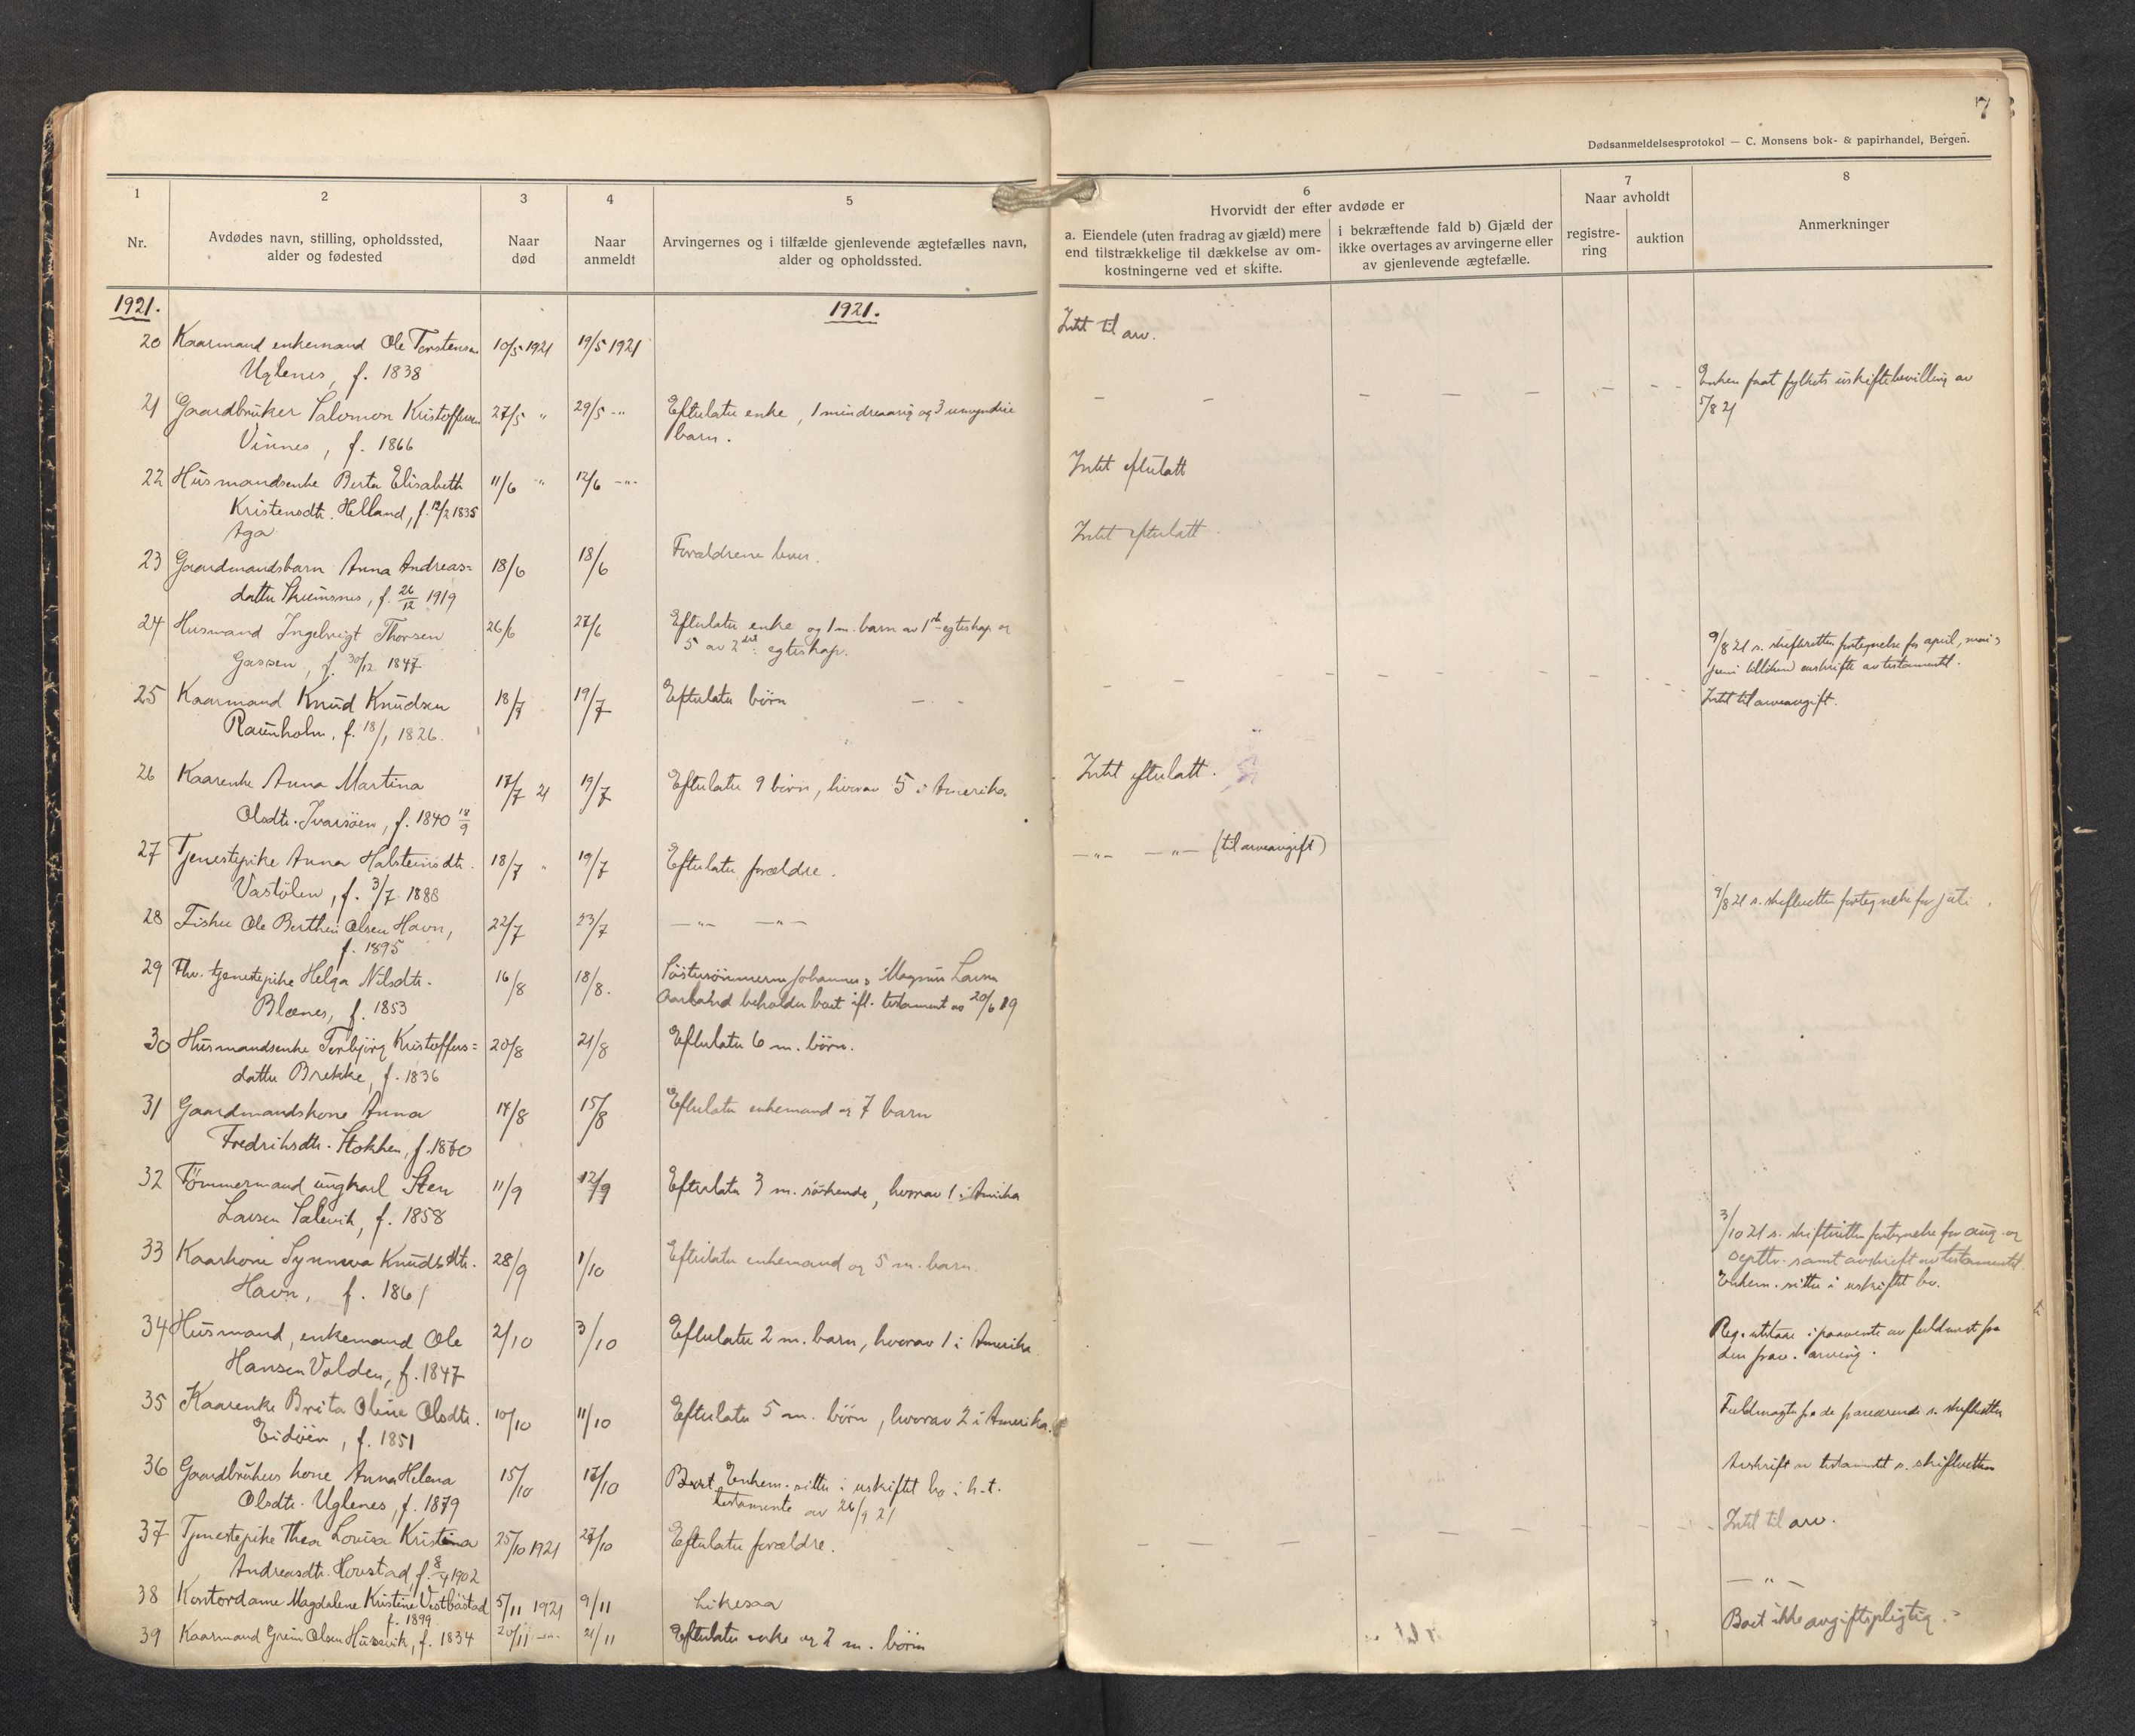 7
Dødsanmeldelsesprotokol — C. Monsens bok- & papirhandel, Bergen.
1
Nr.
2
Avdødes navn, stilling, opholdssted,
alder og fødested
3
Naar
død
4
Naar
anmeldt
5
Arvingernes og i tilfælde gjenlevende ægtefælles navn,
alder og opholdssted.
6
Hvorvidt der efter avdøde er
a. Eiendele (uten fradrag av gjæld) mere
end tilstrækkelige til dækkelse av om-
kostningerne ved et skifte.
i bekræftende fald b) Gjæld der
ikke overtages av arvingerne eller
av gjenlevende ægtefælle.
7
Naar avholdt
registre-
ring
auktion
8
Anmerkninger
1921.
1921.
20 Kaarmand enkemand Ole Torstensen 10/5 1921 19/5 1921 Intet til arv.
Uglenes, f. 1838
21 Gaardbruker Salomon Kristoffersen 27/5 " 29/5 -"- Efterlater enke, 1 mindreaarig og 3 umyndige Enken faat fylkets uskiftebevilling av
Vinnes, f. 1866 barn. 5/8 21
22 Husmandsenke Berta Elisabeth 11/6 -"- 12/6 -"- Intet efterlatt
Kristensdtr. Helland, f. 12/2 1835
Aga
23 Gaardmandsbarn Anna Andreas= 18/6 18/6 Forældrene lever. Intet efterlatt.
datter Skeimsnes, f. 26/12 1919
24 Husmand Ingebrigt Thorsen 26/6 27/6 Efterlater enke og 1 m. barn av 1ste egteskap og
Gassen, f. 30/12 1847 5 av 2det egteskap.
9/8 21 s. skifteretten fortegnelse for april, mai og
juni tillikemed avskrifte av testamentet.
25 Kaarmand Knud Knudsen 18/7 19/7 Efterlater börn Intet til arveavgift.
Raunholm, f. 18/1 1826.
26 Kaarenke Anna Martina 17/7 21 19/7 Efterlater 9 börn, hvorav 5 i Amerika. Intet efterlatt.
Olsdtr. Ivarsöen, f. 1840 18/9
27 Tjenestepike Anna Halsteinsdtr. 18/7 " 19/7 Efterlater forældre. -"- -"- (til arveavgift)
Vastölen, f. 3/7 1888
9/8 21 s. skifteretten fortegnelse for juli.
28 Fisker Ole Berthin Olsen Havn, 22/7 23/7 -"- -"-
f. 1895
29 Fhv. tjenestepike Helga Nilsdtr. 16/8 18/8. Söstersönnerne Johannes og Magnus Larsen
Blænes, f. 1853 Aarland beholder boet ifl. testament av 20/6 89
30 Husmandsenke Torbjörg Kristoffers= 20/8 21/8 Efterlater 6 m. börn.
datter Brekke, f. 1836
31 Gaardmandskone Anna 14/8 15/8 Efterlater enkemand og 7 barn
Fredriksdtr. Stokken, f. 1860
32 Tömmermand ungkarl Sten 11/9 12/9 Efterlater 3 m. söskende, hvorav 1 i Amerika
Larsen Salevik, f. 1858
3/10 21 s. skifteretten fortegnelse for aug. og
septbr. samt avskrift av testamentet.
33 Kaarkone Synneva Knudsdtr. 28/9 1/10 Efterlater enkemand og 5 m. barn. Enkem. sitter i uskiftet bo.
Havn, f. 1861
34 Husmand, enkemand Ole 2/10 3/10 Efterlater 2 m. barn, hvorav 1 i Amerika. Reg. utstaar i paavente av fuldmagt fra
Hansen Valden, f. 1847 den frav. arving.
35 Kaarenke Brita Oline Olsdtr. 10/10 11/10 Efterlater 5 m. börn, hvorav 2 i Amerika. Fuldmagter fra de fraværende s. skifteretten
Eidöen, f. 1851
36 Gaardbrukers kone Anna Helena 15/10 17/10 Enkem. sitter i uskiftet bo i h.t. Avskrift av testamentet s. skifteretten
Olsdtr. Uglenes, f. 1879 testamente av 26/9 21
37 Tjenestepike Thea Lovisa Kristina 25/10 1921 27/10 Efterlater forældre. Intet til arv.
Andreasdtr. Hovstad, f. 8/4 1902
38 Kontordame Magdalene Kristine Vestböstad 5/11 1921 9/11 Likesaa -"-
f. 1899
39 Kaarmand Greim Olsen Husevik, f. 1834 20/11 -"- 21/11 Efterlater enke og 2 m. börn Boet ikke avgiftspligtig.